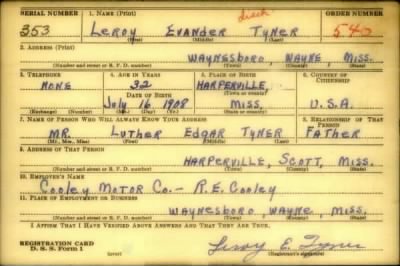 SERIAL NUMBER 1. NAME (Print) ORDER NUMBER
353 LEROY EVANDER TYNER 540
(First) (Middle) (Last)
2. ADDRESS (Print)
WAYNESBORO, WAYNE, MISS.
(Number and street or R. F. D. number) (Town) (County) (State)
3. TELEPHONE 4. AGE IN YEARS 5. PLACE OF BIRTH 6. COUNTRY OF CITIZENSHIP
NONE 32 HARPERVILLE,
DATE OF BIRTH (Town or county)
July 16 1908 MISS. U.S.A.
(Exchange) (Number) (Mo.) (Day) (Yr.) (State or country)
7. NAME OF PERSON WHO WILL ALWAYS KNOW YOUR ADDRESS 8. RELATIONSHIP OF THAT PERSON
MR. LUTHER EDGAR TYNER FATHER
(Mr., Mrs., Miss) (First) (Middle) (Last)
9. ADDRESS OF THAT PERSON
HARPERVILLE, SCOTT, MISS.
(Number and street or R. F. D. number) (Town) (County) (State)
10. EMPLOYER'S NAME
Cooley MOTOR Co. — R.E. Cooley
11. PLACE OF EMPLOYMENT OR BUSINESS
WAYNESBORO, WAYNE, MISS.
(Number and street or R. F. D. number) (Town) (County) (State)
I AFFIRM THAT I HAVE VERIFIED ABOVE ANSWERS AND THAT THEY ARE TRUE.
REGISTRATION CARD
D. S. S. FORM 1 (over) Leroy E. Tyner
(Registrant's signature)